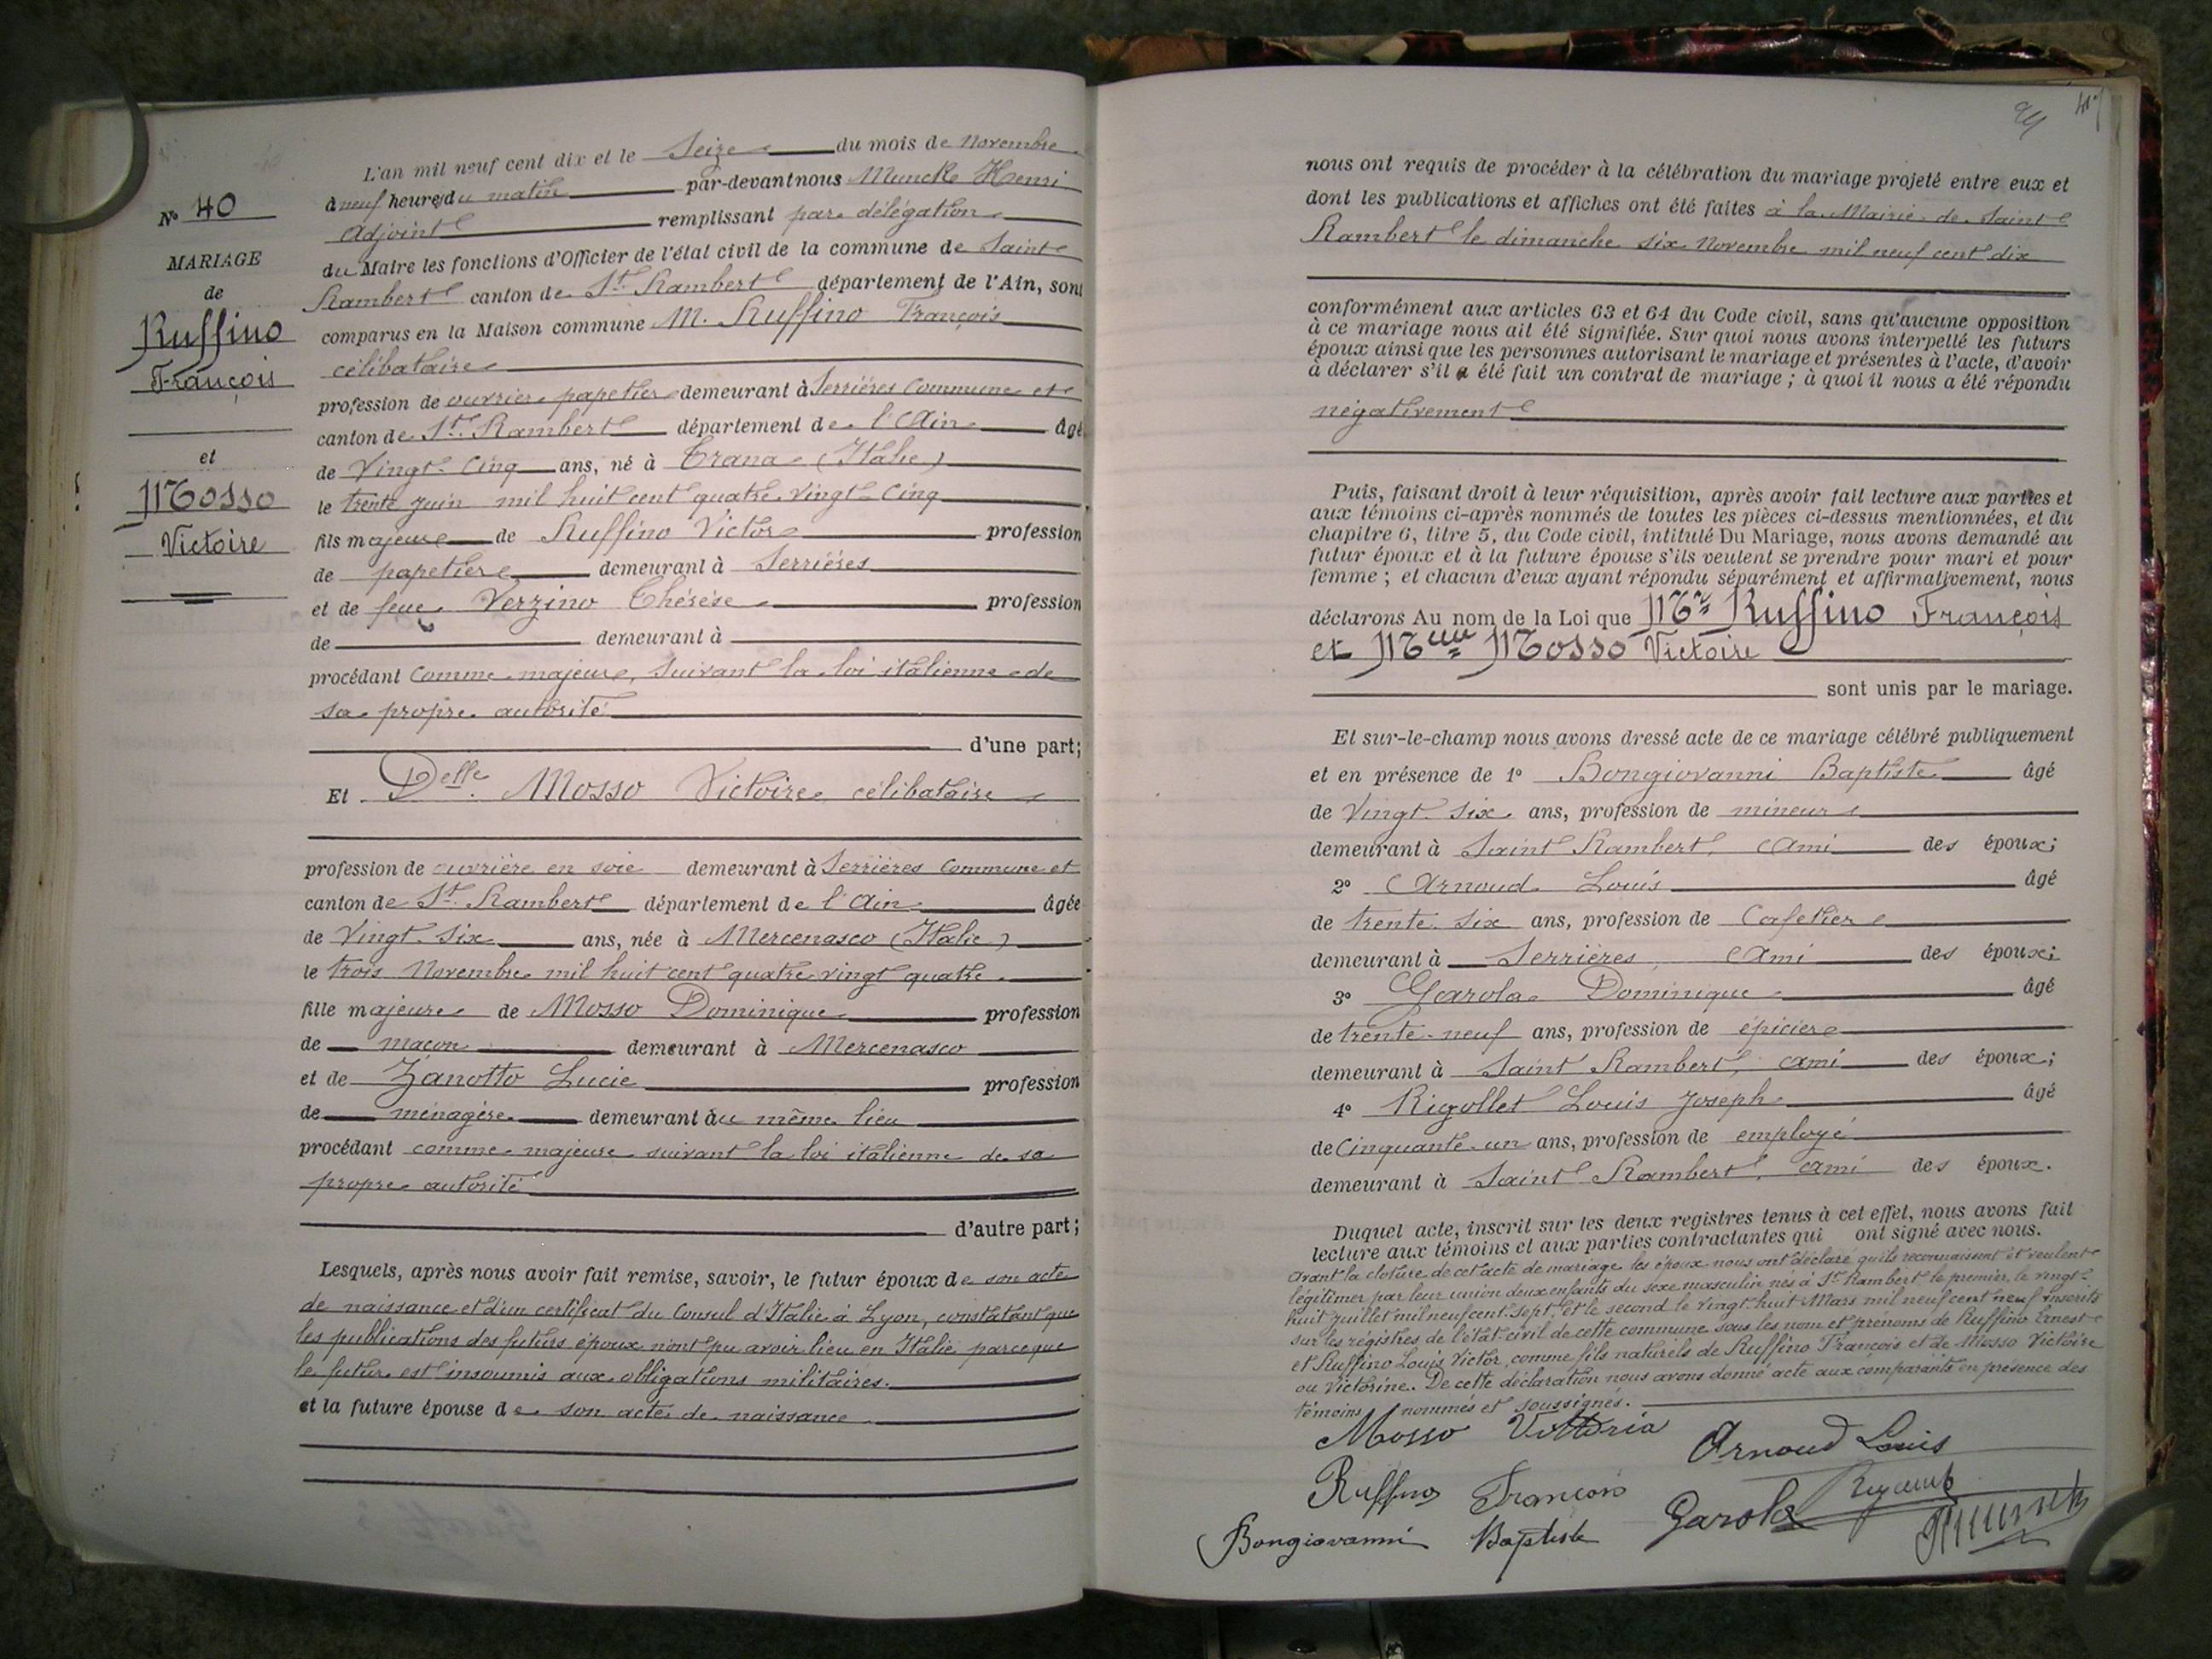 N° 40
MARIAGE
de
Ruffino
François
et
Mosso
Victoire
L'an mil neuf cent dix et le Seize du mois de Novembre
à neuf heures du matin par-devant nous Munck Henri
Adjoint remplissant par délégation
du Maire les fonctions d'Officier de l'état civil de la commune de Saint
Rambert canton de St. Rambert département de l'Ain, sont
comparus en la Maison commune M. Ruffino François
célibataire
profession de ouvrier papetier demeurant à Serrières Commune et
canton de St. Rambert département de l'Ain âgé
de Vingt-Cinq ans, né à Trana (Italie)
le trente juin mil huit cent quatre vingt-Cinq
fils majeur de Ruffino Victor profession
de papetier demeurant à Serrières
et de feue Verzino Thérèse profession
de demeurant à
procédant Comme majeur, suivant la loi italienne de
sa propre autorité
d'une part;
Et Delle. Mosso Victoire, célibataire
profession de ouvrière en soie demeurant à Serrières Commune et
canton de St. Rambert département de l'Ain âgée
de Vingt-Six ans, née à Mercenasco (Italie)
le trois Novembre mil huit cent quatre vingt quatre
fille majeure de Mosso Dominique profession
de maçon demeurant à Mercenasco
et de Zanotto Lucie profession
de ménagère demeurant au même lieu
procédant comme majeure suivant la loi italienne de sa
propre autorité
d'autre part;
Lesquels, après nous avoir fait remise, savoir, le futur époux de son acte
de naissance et d'un certificat du Consul d'Italie à Lyon, constatant que
les publications des futurs époux n'ont pu avoir lieu en Italie parceque
le futur est insoumis aux obligations militaires.
et la future épouse de son acte de naissance
41
nous ont requis de procéder à la célébration du mariage projeté entre eux et
dont les publications et affiches ont été faites à la Mairie de Saint
Rambert le dimanche six Novembre mil neuf cent dix
conformément aux articles 63 et 64 du Code civil, sans qu'aucune opposition
à ce mariage nous ait été signifiée. Sur quoi nous avons interpellé les futurs
époux ainsi que les personnes autorisant le mariage et présentes à l'acte, d'avoir
à déclarer s'il a été fait un contrat de mariage; à quoi il nous a été répondu
négativement
Puis, faisant droit à leur réquisition, après avoir fait lecture aux parties et
aux témoins ci-après nommés de toutes les pièces ci-dessus mentionnées, et du
chapitre 6, titre 5, du Code civil, intitulé Du Mariage, nous avons demandé au
futur époux et à la future épouse s'ils veulent se prendre pour mari et pour
femme; et chacun d'eux ayant répondu séparément et affirmativement, nous
déclarons Au nom de la Loi que Mr Ruffino François
et Melle Mosso Victoire
sont unis par le mariage.
Et sur-le-champ nous avons dressé acte de ce mariage célébré publiquement
et en présence de 1° Bongiovanni Baptiste âgé
de Vingt-Six ans, profession de mineur
demeurant à Saint Rambert, Ami des époux;
2° Arnoud Louis âgé
de trente-six ans, profession de Cafetier
demeurant à Serrières, Ami des époux;
3° Garola Dominique âgé
de trente-neuf ans, profession de épicier
demeurant à Saint Rambert, ami des époux;
4° Rigollet Louis Joseph âgé
de Cinquante-un ans, profession de employé
demeurant à Saint Rambert, ami des époux.
Duquel acte, inscrit sur les deux registres tenus à cet effet, nous avons fait
lecture aux témoins et aux parties contractantes qui ont signé avec nous.
Avant la cloture de cet acte de mariage les époux nous ont déclaré qu'ils reconnaissent et veulent
légitimer par leur union deux enfants du sexe masculin nés à St. Rambert le premier, le vingt-
huit Juillet mil neuf cent sept, et le second le vingt huit Mars mil neuf cent neuf inscrits
sur les régistres de l'état-civil de cette commune sous les nom et prénoms de Ruffino Ernest
et Ruffino Louis Victor, comme fils naturels de Ruffino François et de Mosso Victoire
ou Victorine. De cette déclaration nous avons donné acte aux comparants en présence des
témoins nommés et soussignés.
Mosso Vittoria Arnoud Louis
Ruffino François Garola
Bongiovanni Baptiste